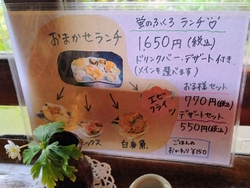 おまかせランチ
エビフライ
ックス
白身魚
蛍のふくろ ランチ
1650円(税込)
ドリンクバー・デザート付き。
(メインを選べます)
お子様セット
770円(税込)
デザートセット
550円(税込)
ごはんの
おかわり ¥150